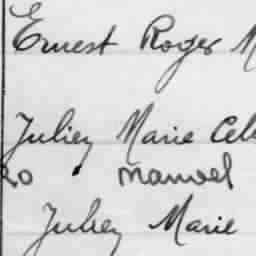 Ernest Roger M
Juliey Marie Cel
ro • manuel
Juliey Marie